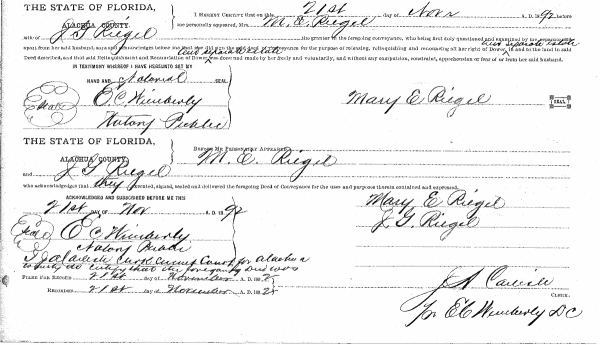 THE STATE OF FLORIDA, I HEREBY CERTIFY that on this 21st day of Novr A. D. 1892 before
ALACHUA COUNTY. me personally appeared, Mrs. M. E. Riegel
wife of J G Riegel the grantor in the foregoing conveyance, who being first duly questioned and examined by me
and separate estate
apart from her said husband, says and acknowledges before me that she for the purpose of releasing, relinquishing and renouncing all her right of Dower in and to the land in said
and separate estate
Deed described, and that said Relinquishment and Renunciation of Dower was done and made by her freely and voluntarily, and without any compulsion, constraint, apprehension or fear of or from her said husband.
IN TESTIMONY WHEREOF I HAVE HEREUNTO SET MY
HAND AND Notarial SEAL
Seal E C Wimberly Mary E Riegel SEAL
Notary Public
THE STATE OF FLORIDA, BEFORE ME PERSONALLY APPEARED
ALACHUA COUNTY. M. E. Riegel
and J G Riegel
who acknowledged that they executed, signed, sealed and delivered the foregoing Deed of Conveyance for the uses and purposes therein contained and expressed.
ACKNOWLEDGED AND SUBSCRIBED BEFORE ME THIS Mary E Riegel
21st DAY OF Nov A. D. 1892 J. G. Riegel
Seal E C Wimberly
Notary Public
I J A Carlisle Clerk Circuit Court for Alachua
County do certify that the foregoing Deed was
FILED FOR RECORD 21st day of November A. D. 1892
RECORDED 21st day of November A. D. 1892
J A Carlisle
CLERK.
pr E C Wimberly D C